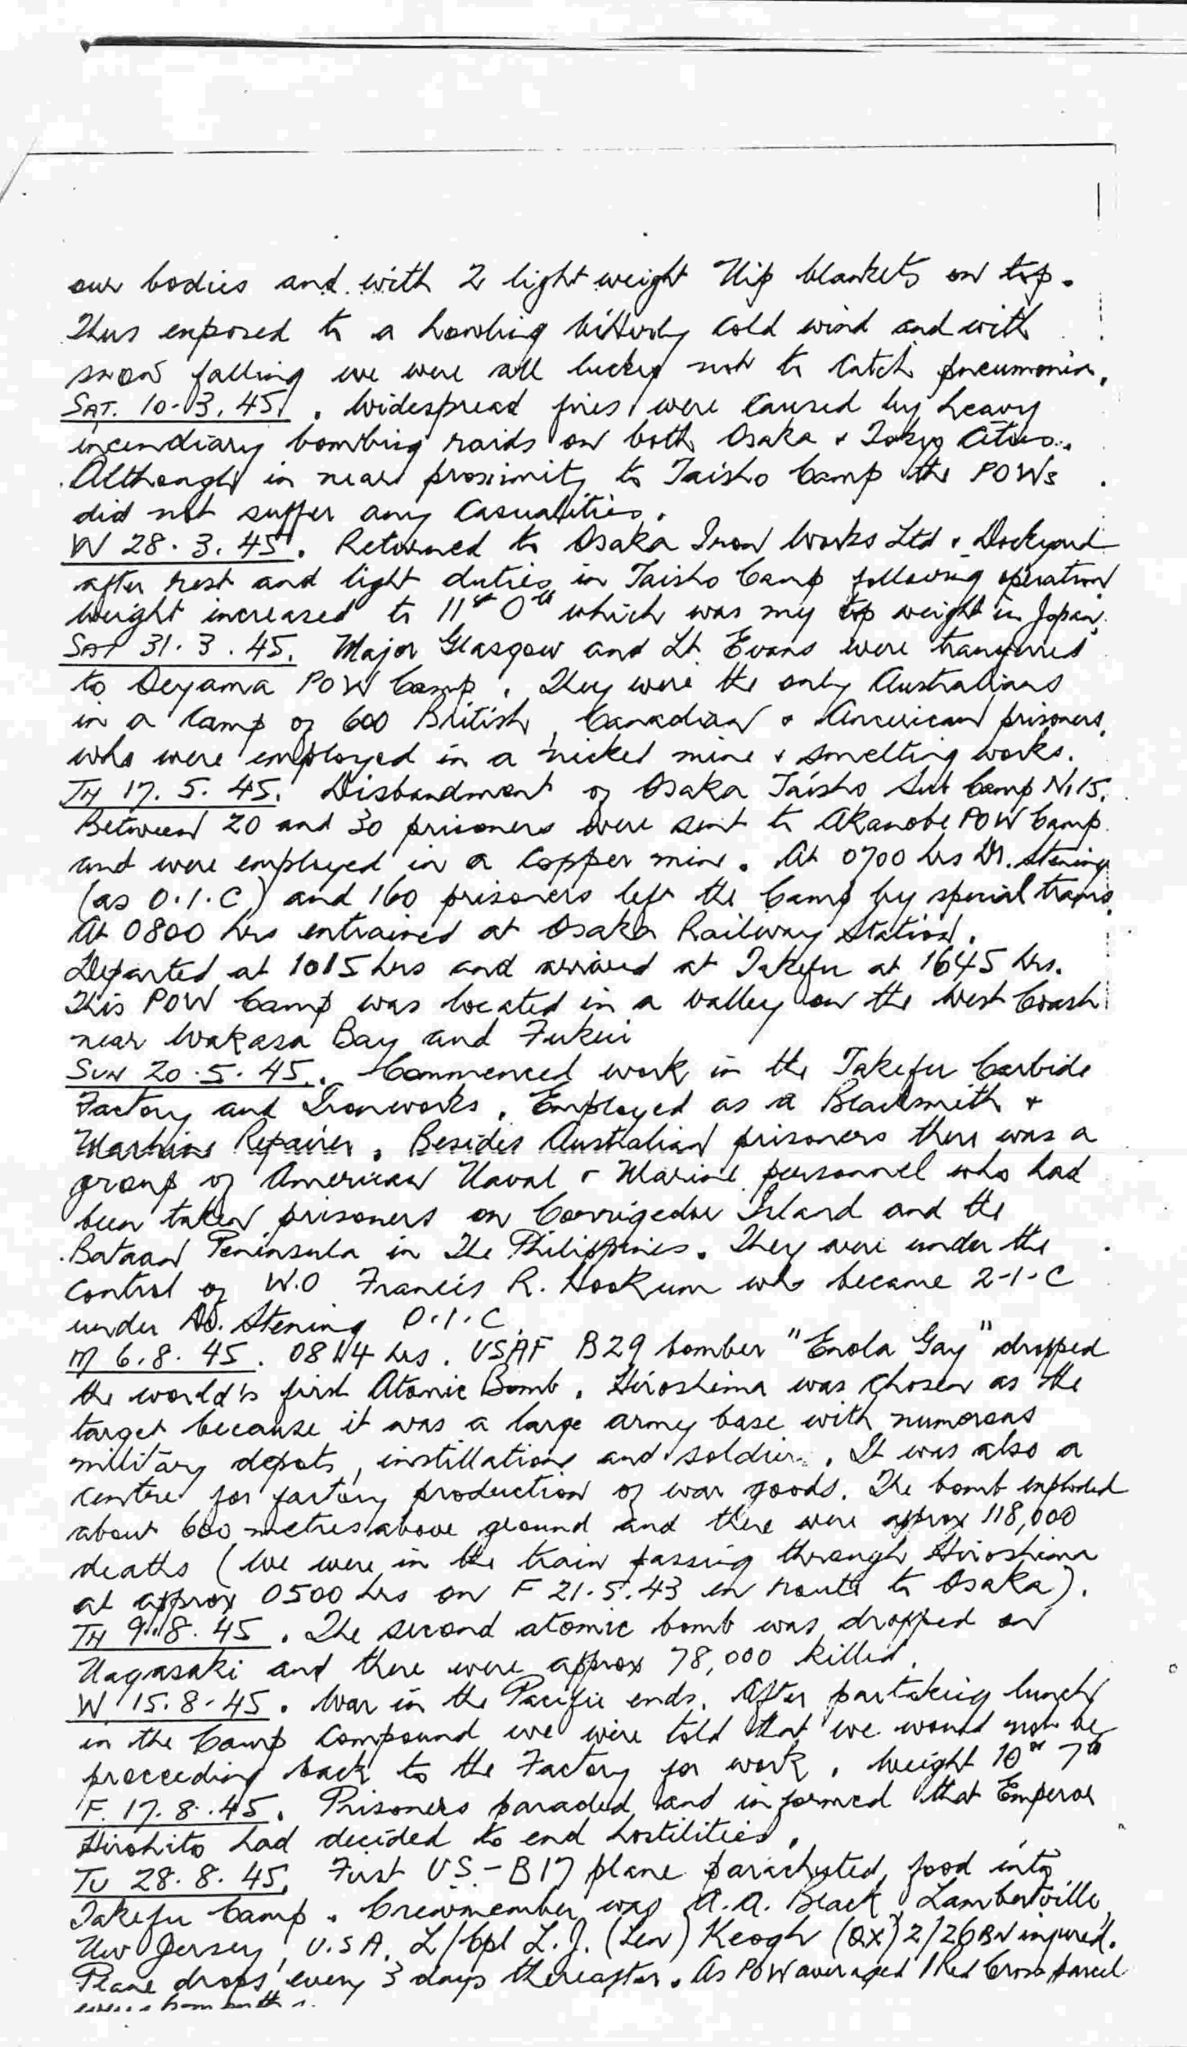 our bodies and with 2 light weight Nip blankets on top.
Thus exposed to a howling bitterly cold wind and with
snow falling we were all lucky not to catch pneumonia.
SAT. 10.3.45. Widespread fires were caused by heavy
incendiary bombing raids on both Osaka & Tokyo Cities.
Although in near proximity to Taisho Camp the POWs
did not suffer any casualities.
W 28.3.45. Returned to Osaka Iron Works Ltd & Dockyard
after rest and light duties in Taisho Camp following operation
weight increased to 11st 0lb which was my top weight in Japan.
SAT 31.3.45. Major Glasgow and Lt. Evans were transferred
to Oeyama POW Camp. They were the only Australians
in a camp of 600 British, Canadian & American prisoners,
who were employed in a nickel mine & smelting works.
TH 17.5.45. Disbandment of Osaka Taisho Sub Camp N.15.
Between 20 and 30 prisoners were sent to Akanobe POW Camp
and were employed in a copper mine. At 0700 hrs Dr. Stening
(as O.I.C) and 160 prisoners left the Camp by special trams.
At 0800 hrs entrained at Osaka Railway Station.
Departed at 1015 hrs and arrived at Takefu at 1645 hrs.
This POW Camp was located in a valley on the West Coast
near Wakasa Bay and Fukui
SUN 20.5.45. Commenced work in the Takefu Carbide
Factory and Ironworks. Employed as a Blacksmith &
Machine Repairer. Besides Australian prisoners there was a
group of American Naval & Marine personnel who had
been taken prisoners on Corrigedor Island and the
Bataan Peninsula in The Philippines. They were under the
control of W.O Francis R. Hookum who became 2-I-C
under Dr. Stening O.I.C.
M 6.8.45. 0814 hrs. USAF B29 bomber "Enola Gay" dropped
the world's first Atomic Bomb. Hiroshima was chosen as the
target because it was a large army base with numerous
military depots, instillations and soldiers. It was also a
centre for factory production of war goods. The bomb exploded
about 600 metres above ground and there were approx 118,000
deaths (We were in the train passing through Hiroshima
at approx 0500 hrs on F 21.5.43 en route to Osaka).
TH 9.8.45. The second atomic bomb was dropped on
Nagasaki and there were approx 78,000 killed.
W 15.8.45. War in the Pacific ends. After partaking lunch
in the Camp Compound we were told that we would not be
proceeding back to the Factory for work. Weight 10st 7lb
F. 17.8.45. Prisoners paraded and informed that Emperor
Hirohito had decided to end hostilities.
TU 28.8.45. First US-B17 plane parachuted food into
Takefu Camp. Crewmember was A.A. Black, Lambertville,
New Jersey, U.S.A. L/Cpl L.J. (Len) Keogh (QX) 2/26 BN injured.
Plane drops every 3 days thereafter. As POW averaged 1 Red Cross parcel